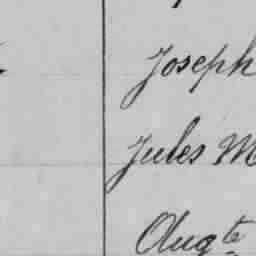 Joseph
Jules M
Augte